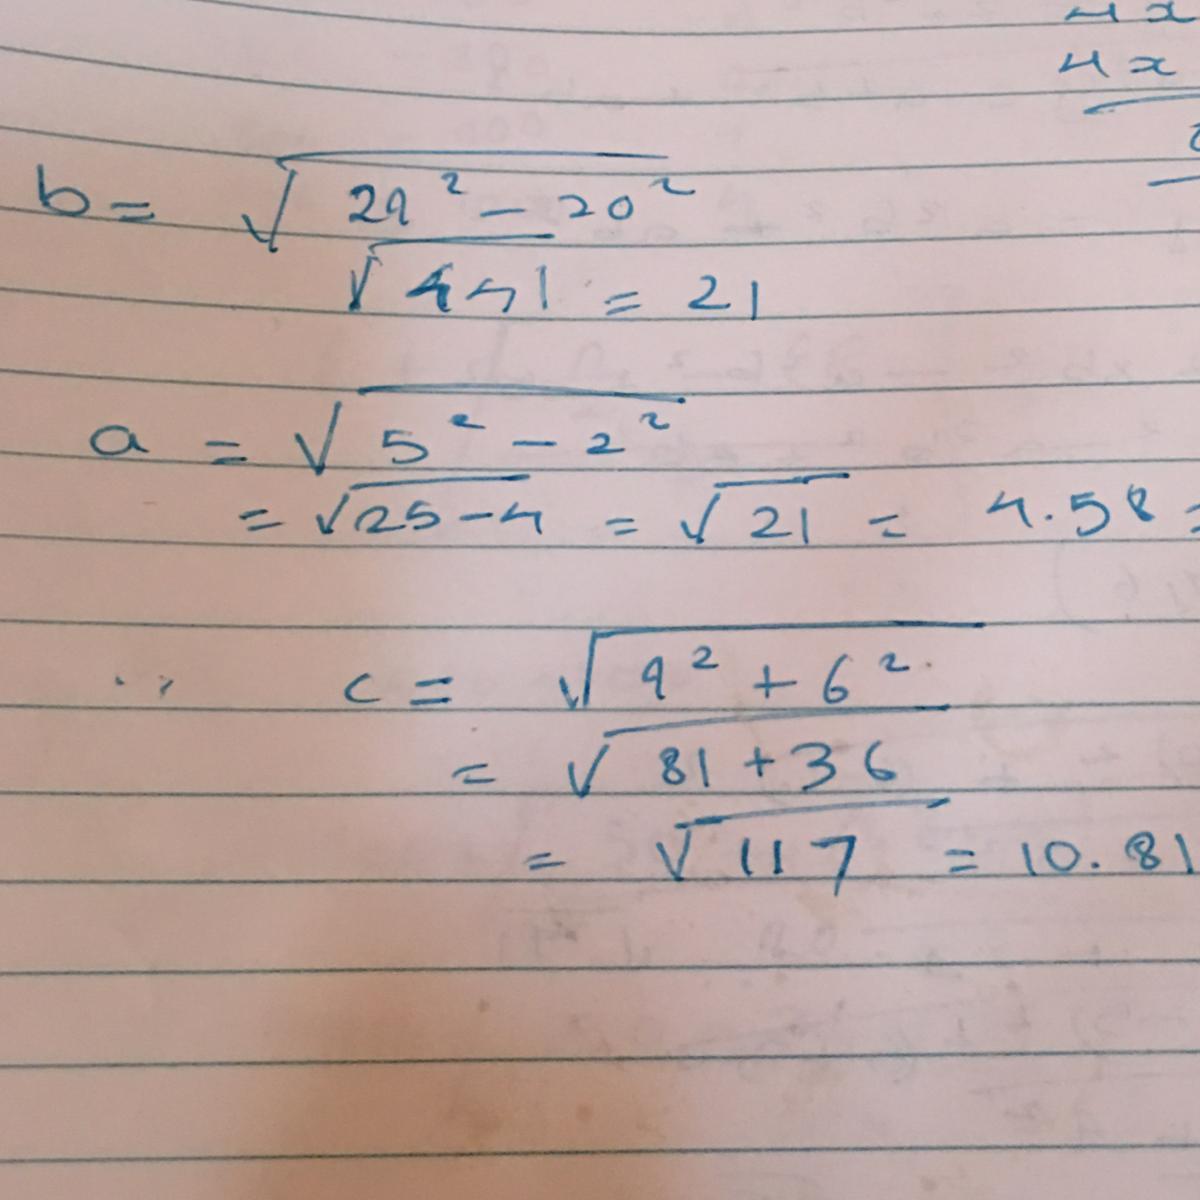 4x
4x
b = √29² - 20²
√441 = 21
a = √5² - 2²
= √25-4 = √21 = 4.58 =
∵ c = √9² + 6²
= √81 + 36
= √117 = 10.81